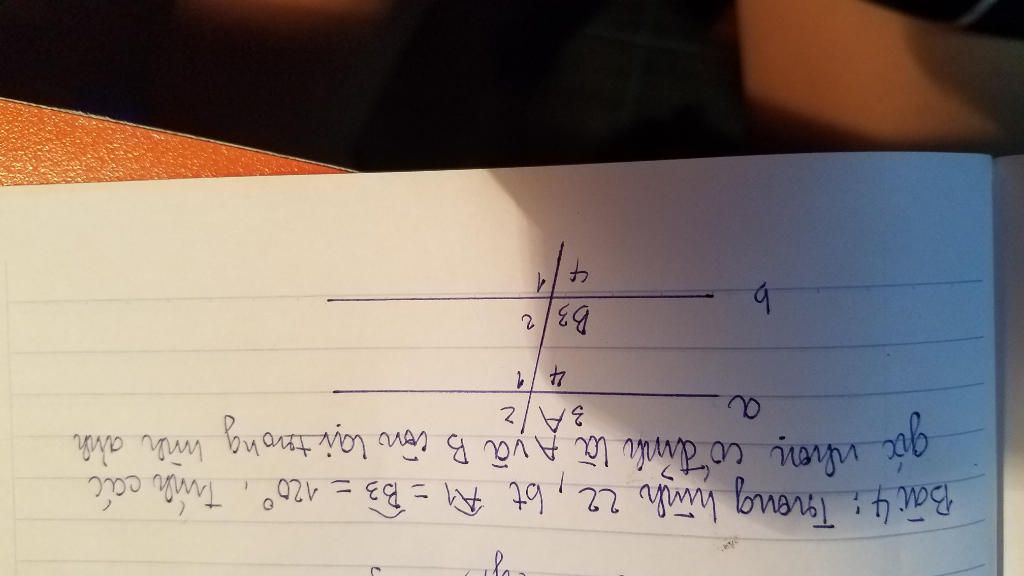 Bài 4: Trong hình 22, bt Â1 = B̂3 = 120°, Tính các
góc nhọn có đỉnh là A và B còn lại trong hình ảnh
3 A 2
a
4 1
B3 2
b
4 1